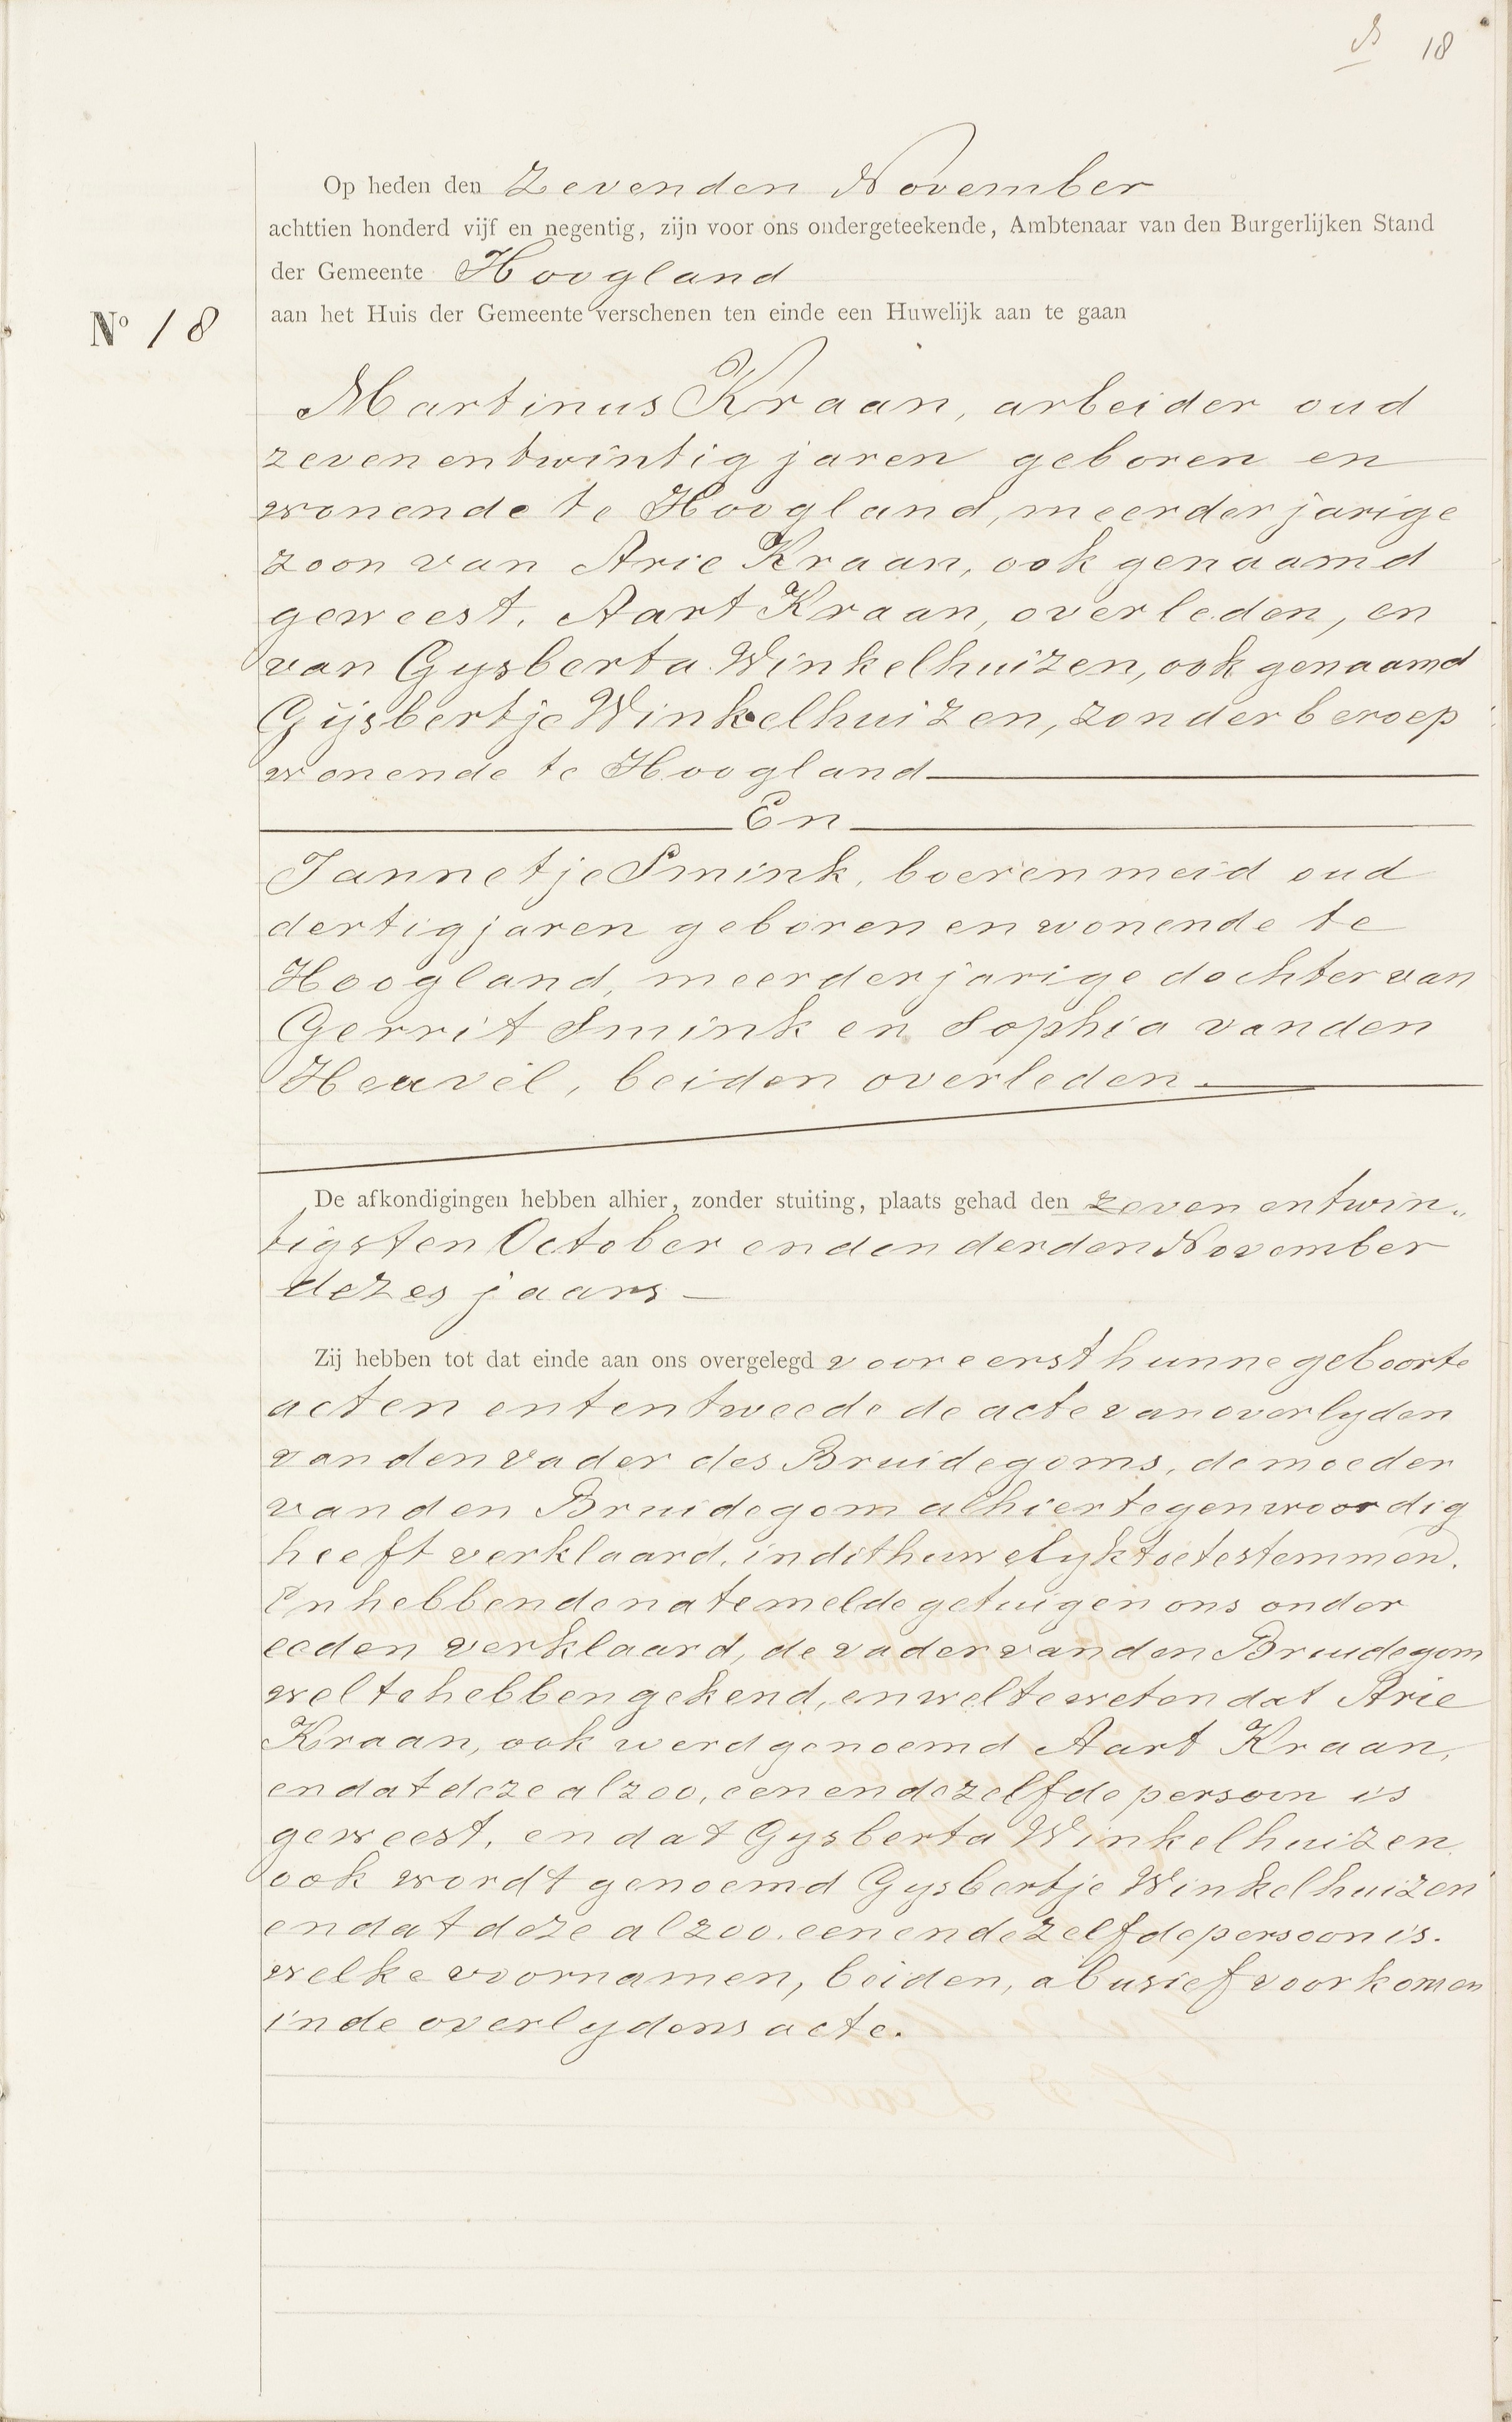 18
Op heden den Zevenden November
achttien honderd vijf en negentig, zijn voor ons ondergeteekende, Ambtenaar van den Burgerlijken Stand
der Gemeente Hoogland
aan het Huis der Gemeente verschenen ten einde een Huwelijk aan te gaan
No 18
Martinus Kraan, arbeider oud
zevenentwintig jaren geboren en
wonende te Hoogland, meerderjarige
zoon van Arie Kraan, ook genaamd
geweest. Aart Kraan, overleden, en
van Gysberta Winkelhuizen, ook genaamd
Gijsbertje Winkelhuizen, zonder beroep
wonende te Hoogland
En
Jannetje Smink, boerenmeid oud
dertig jaren geboren en wonende te
Hoogland, meerderjarige dochter van
Gerrit Smink en Sophia van den
Heuvel, beiden overleden.
De afkondigingen hebben alhier, zonder stuiting, plaats gehad den zeven entwin„
tigsten October en den derden November
dezes jaars
Zij hebben tot dat einde aan ons overgelegd vooreerst hunne geboorte
acten en ten tweede de acte van overlyden
van den vader des Bruidegoms, de moeder
van den Bruidegom alhier tegenwoordig
heeft verklaard, in dit huwelyk toetestemmen.
En hebben de natemelde getuigen ons onder
eeden verklaard, de vader van den Bruidegom
wel te hebben gekend, en wel te weten dat Arie
Kraan, ook werd genoemd Aart Kraan,
en dat deze alzoo, een en dezelfde persoon is
geweest, en dat Gysberta Winkelhuizen
ook wordt genoemd Gysbertje Winkelhuizen
en dat deze alzoo, een en dezelfde persoon is.
welke voornamen, beiden, abusief voorkomen
in de overlydens acte.